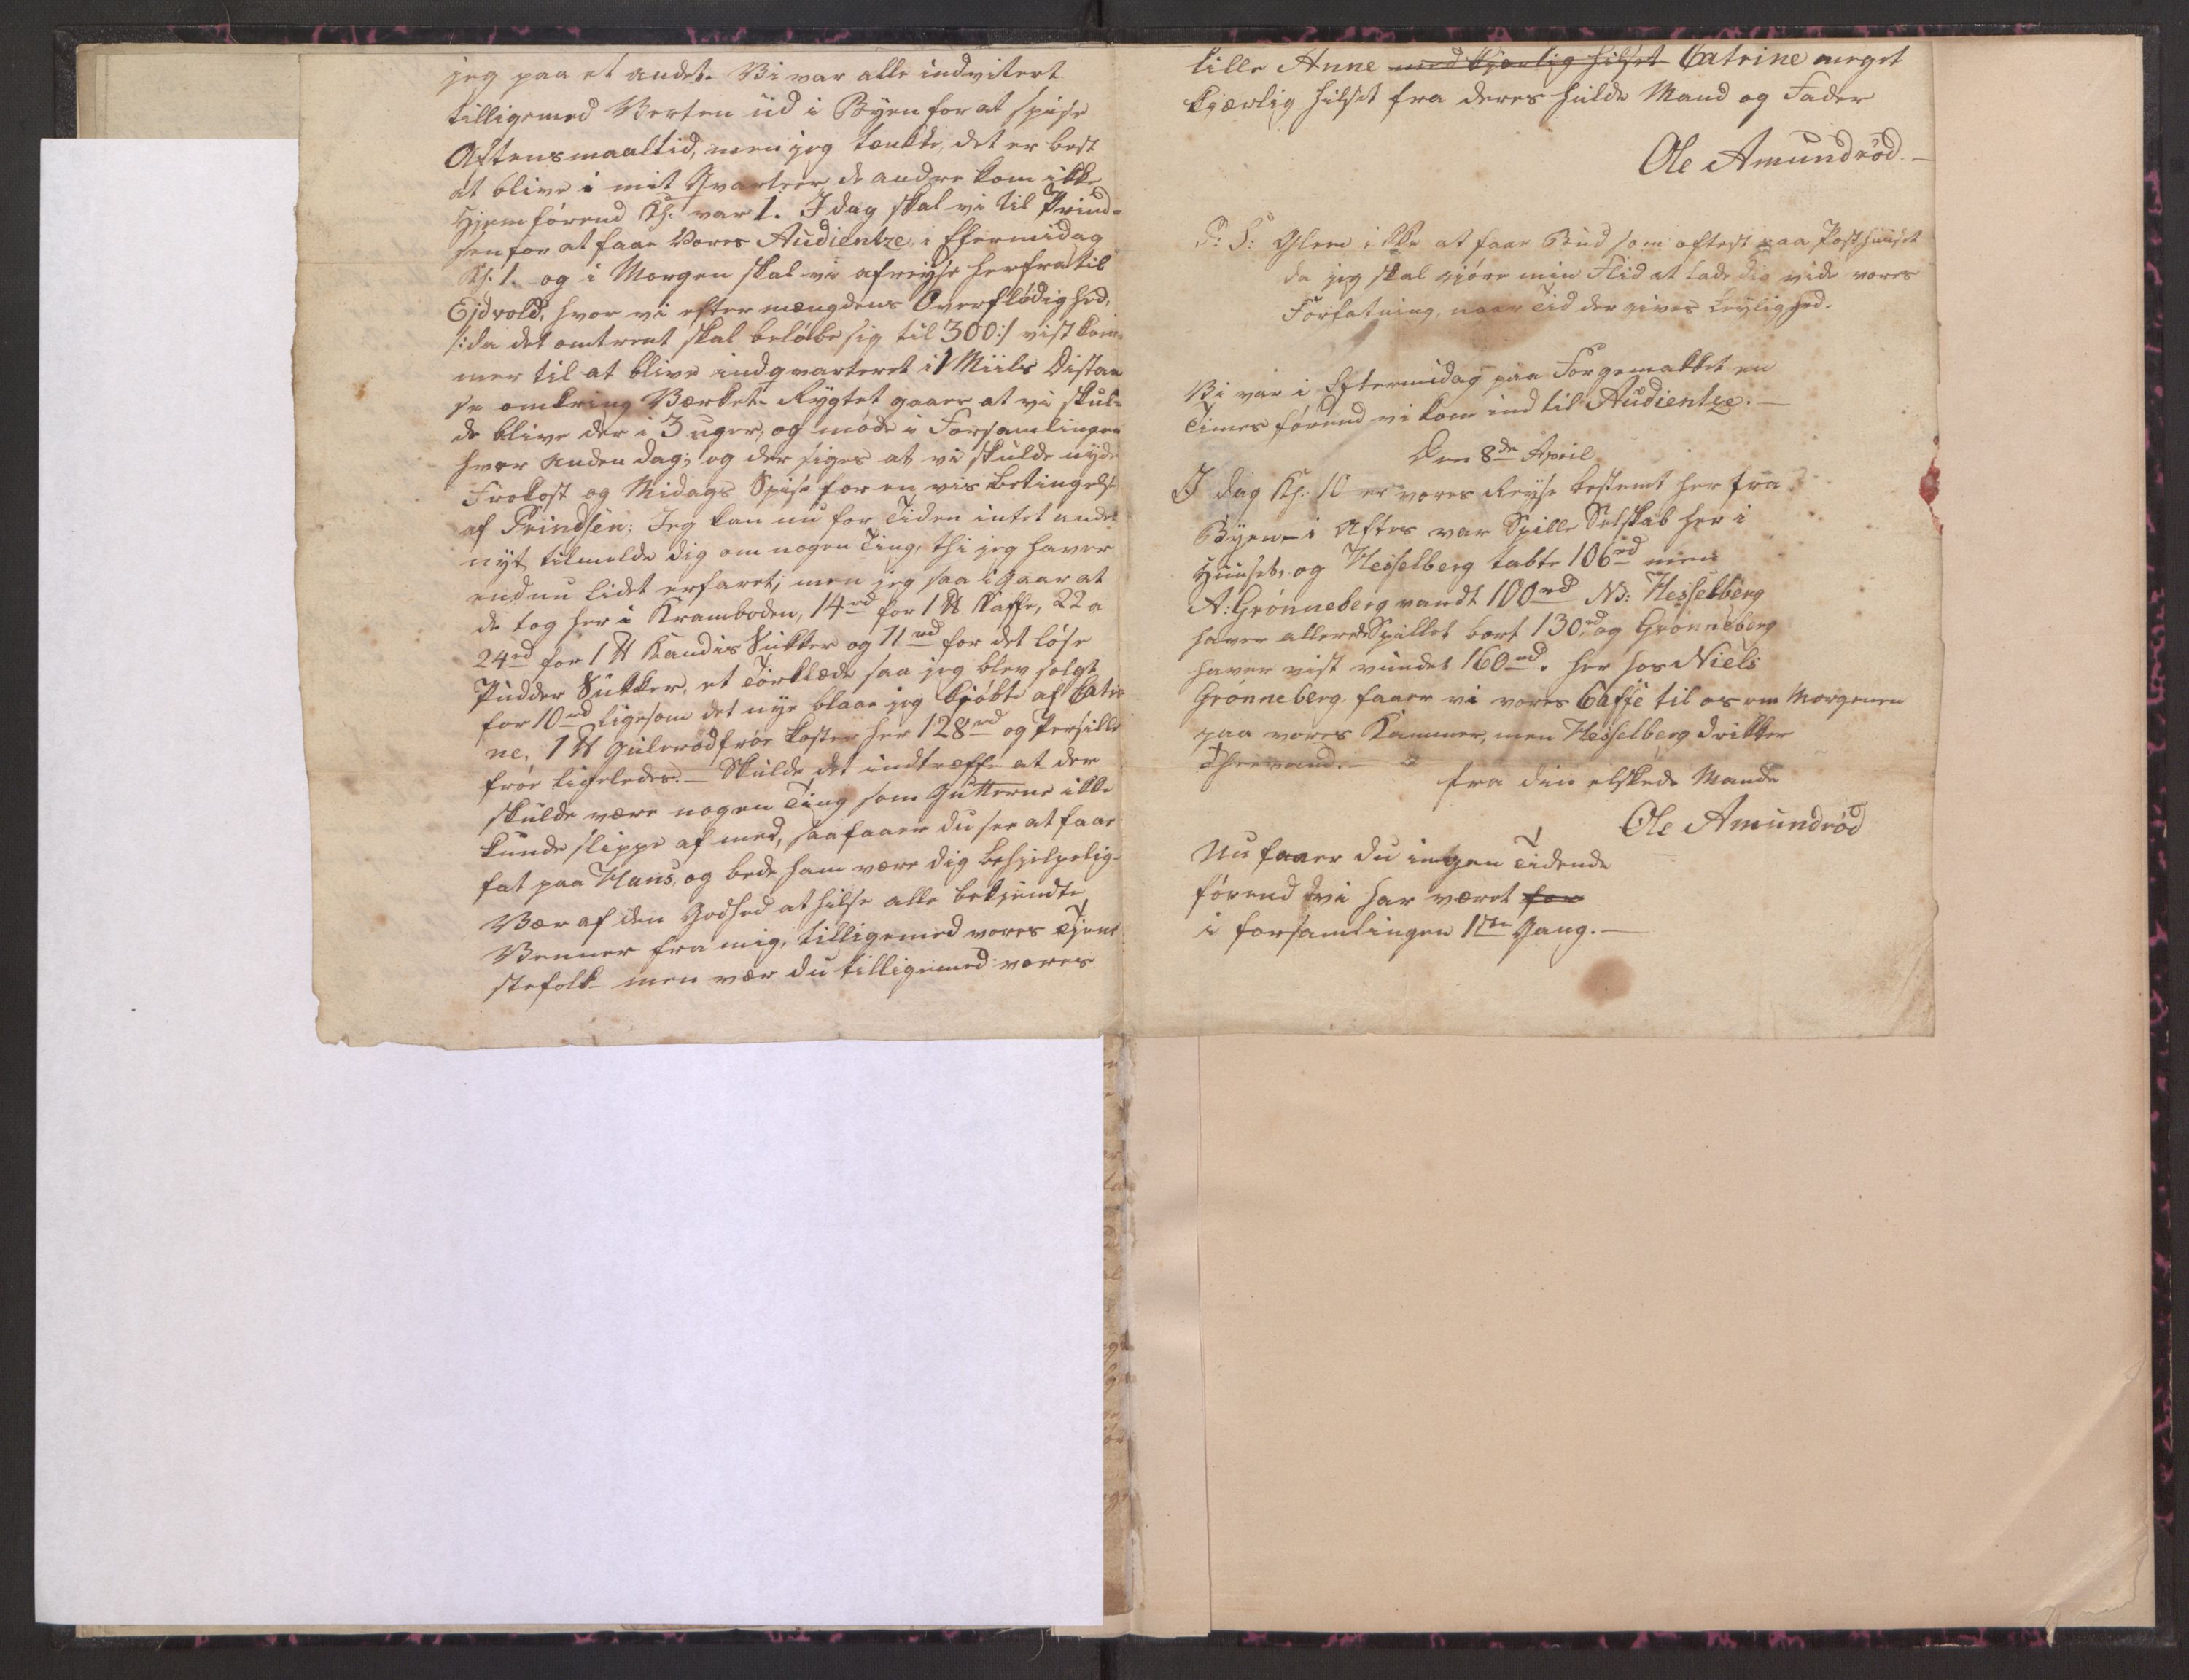 jeg paa et andet. Vi var alle indviteret
tilligemed Verten ud i Byen for at spise
Aftensmaaltid, men jeg tænkte, det er best
at blive i mit Qvarteer, de andre kom ikke
Hjem förend Kl: var 1. I dag skal vi til Prind-
sen for at faae Vores Audientze, i Efermidag
Kl: 1. og i Morgen skal vi afreyse herfra til
Ejdvold, hvor vi efter mængdens Overflödighed,
/: da det omtrent skal belöbe sig til 300 :/ vist kom-
mer til at blive indqvarteret i 1 Miils Distan
se omkring Værket. Rygtet gaaer at vi skul-
de blive der i 3 uger, og möde i Forsamlingen
hver anden dag; og der siges at vi skulde nyde
Frokost og Midags Spise for en vis betingelse
af Prindsen; Jeg kan nu for Tiden intet andet
nyt tilmelde dig om nogen Ting, thi jeg haver
endnu lidet erfaret; men jeg saa i Gaar at
de tog her i Kramboden, 14 rd for 1 ℔ Kaffe, 22 a
24 rd for 1 ℔ Kandis Sukker og 11 rd for det löse
Pudder Sukker, et Törklæde saa jeg blev solgt
for 10 rd ligesom det nye blaae jeg kjöbte af Catri
ne, 1 ℔ Gulerodfröe koster her 128 rd og Persille
fröe ligeledes. – Skulde det indtræffe at der
skulde være nogen Ting som Gutterne ikke
kunde slippe af med, saa faaer du see at faae
fat paa Hans, og bede ham være dig behjelpelig.
Vær af den Godhed at hilse alle bekjendte
Venner fra mig, tilligemed vores Tjene
stefolk men vær du tilligemed vores
lille Anne med kjærlig hilset Catrine meget
kjærlig hilset fra deres hulde Mand og Fader
Ole Amundröd. –
P: S: Glem ikke at faae Bud som oftest paa Posthuuset
da jeg skal gjöre min Flid at lade dig vide vores
Forfatning, naar Tid der gives Leylighed.
Vi var i Eftermidag paa Forgemakket en
Times förend vi kom ind til Audientze. –
Den 8de April
I dag Kl: 10 er vores Reyse bestemt her fra
Byen – i Aftes var Spille Selskab her i
Huuset, og Hesselberg tabte 106 rd men
A: Grönneberg vandt 100 rd NB: Hesselberg
haver allerede Spillet bort 130 rd, og Grönneberg
haver vist vundet 160 rd. her hos Niels
Grönneberg faaer vi vores Caffe til os om Morgenen
paa vores Kammer, men Hesselberg drikker
Theevand. –
fra din elskede Mand
Ole Amundröd
Nu faaer du ingen Tidende
förend vi har været for
i forsamlingen 1ste Gang. –